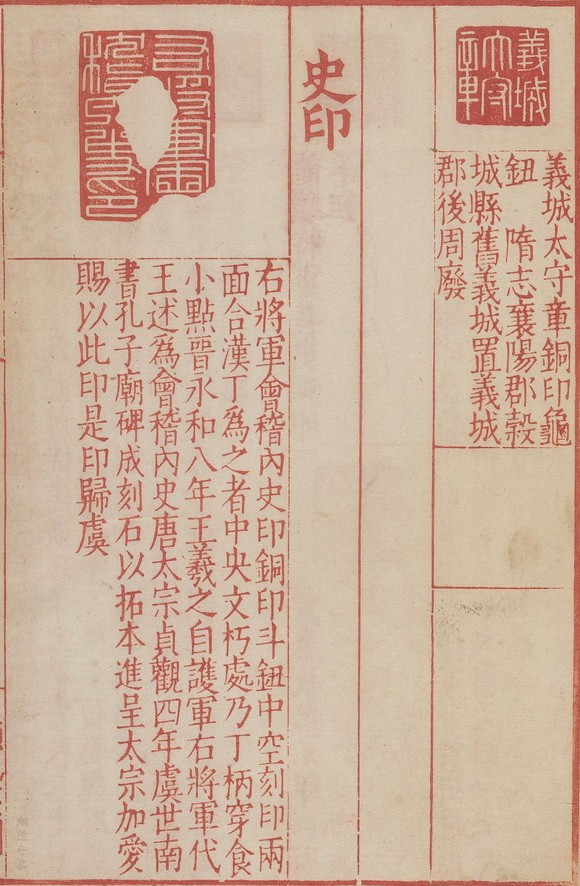 義城
太守
章
義城太守章銅印龜
鈕　隋志襄陽郡穀
城縣舊義城置義城
郡後周廢
史印
右將軍會稽內史印銅印斗鈕中空刻印兩
面合漢丁為之者中央文朽處乃丁柄穿食
小點晉永和八年王羲之自護軍右將軍代
王述為會稽內史唐太宗貞觀四年虞世南
書孔子廟碑成刻石以拓本進呈太宗加愛
賜以此印是印歸虞